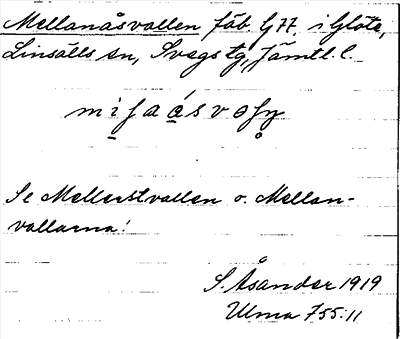 Mellanåsvallen fäb. G 77. i Glöte,
Linsälls sn, Svegs tg, Jämtl. l.
Se Mellerstvallen o. Mellan-
vallarna!
S. Åsander 1919
Ulma 755:11